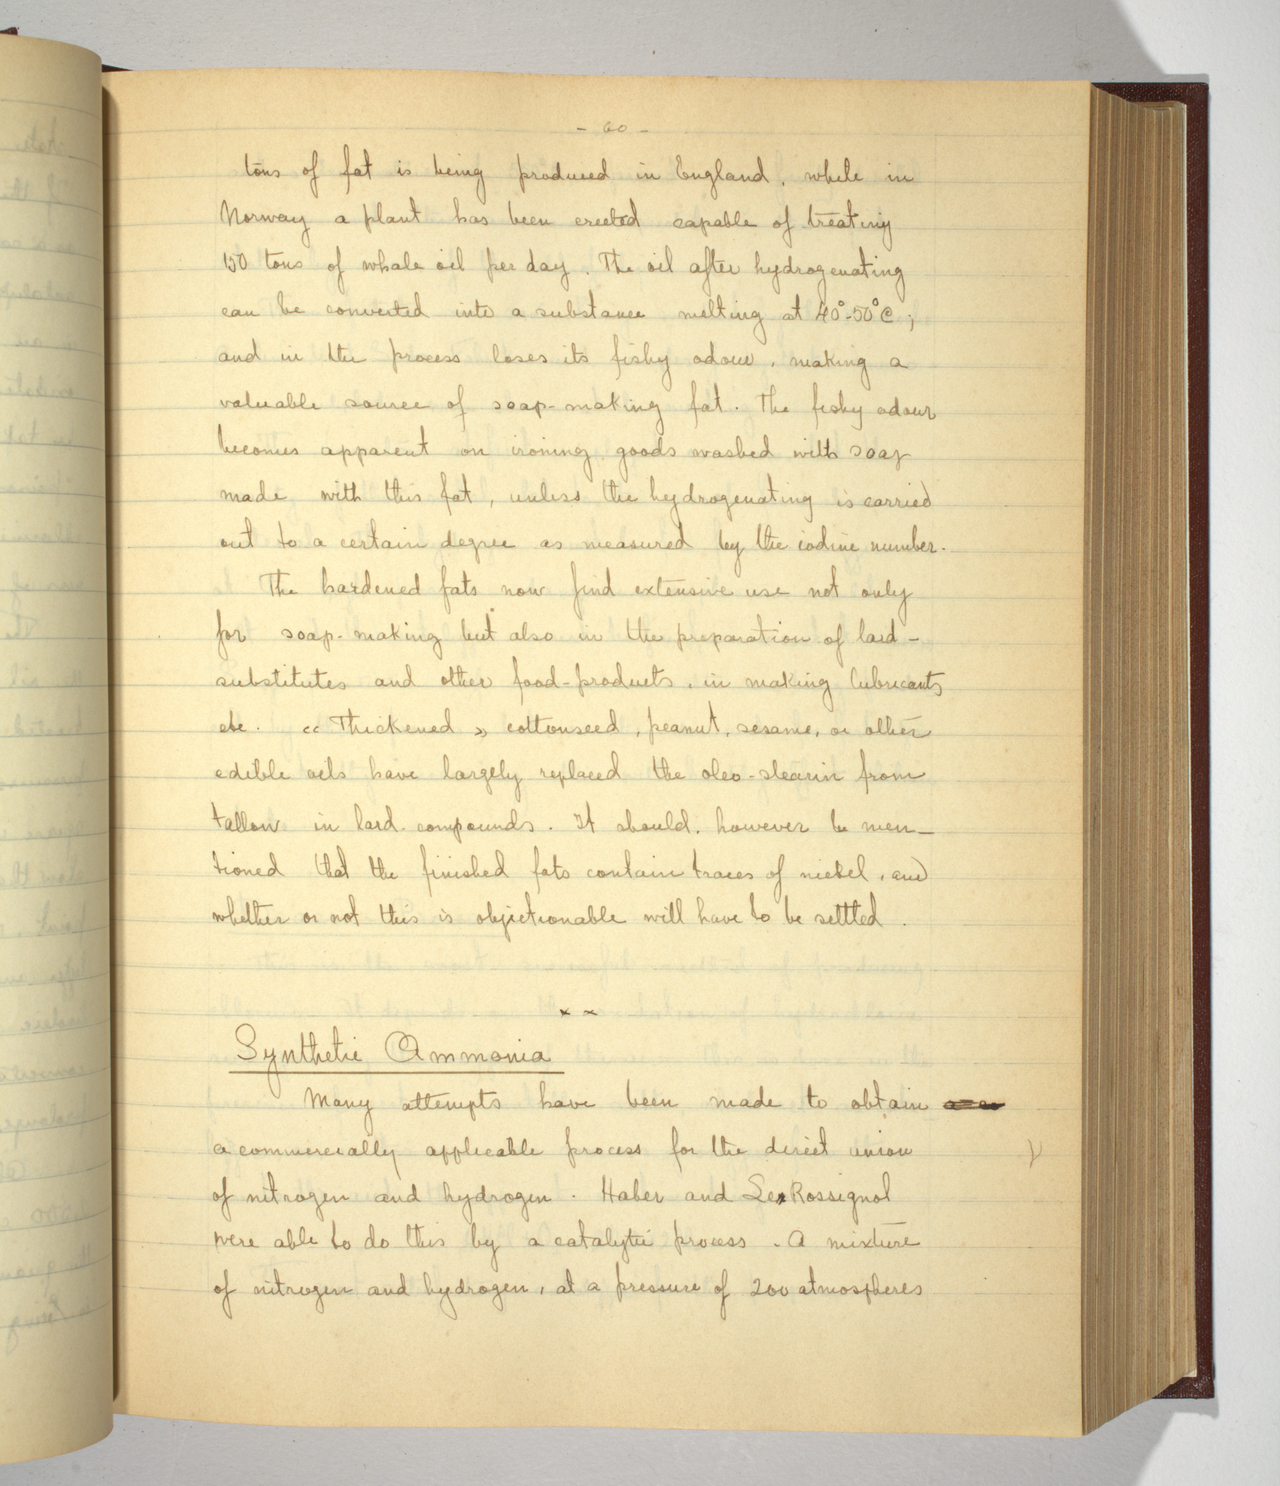 - 60 -
tons of fat is being produced in England, while in
Norway a plant has been erected capable of treating
150 tons of whale oil per day. The oil after hydrogenating
can be converted into a substance melting at 40°-50°C ;
and in the process loses its fishy odour, making a
valuable source of soap-making fat. The fishy odour
becomes apparent on ironing goods washed with soap
made with this fat, unless the hydrogenating is carried
out to a certain degree as measured by the iodine number.
The hardened fats now find extensive use not only
for soap-making but also in the preparation of lard-
substitutes and other food-products, in making lubricants
etc. « Thickened » cottonseed, peanut, sesame, or other
edible oils have largely replaced the oleo-stearin from
tallow in lard compounds. It should, however be men-
tioned that the finished fats contain traces of nickel, and
whether or not this is objectionable will have to be settled.
x x
Synthetic Ammonia
Many attempts have been made to obtain
a commercially applicable process for the direct union
of nitrogen and hydrogen. Haber and Le Rossignol
were able to do this by a catalytic process. A mixture
of nitrogen and hydrogen, at a pressure of 200 atmospheres